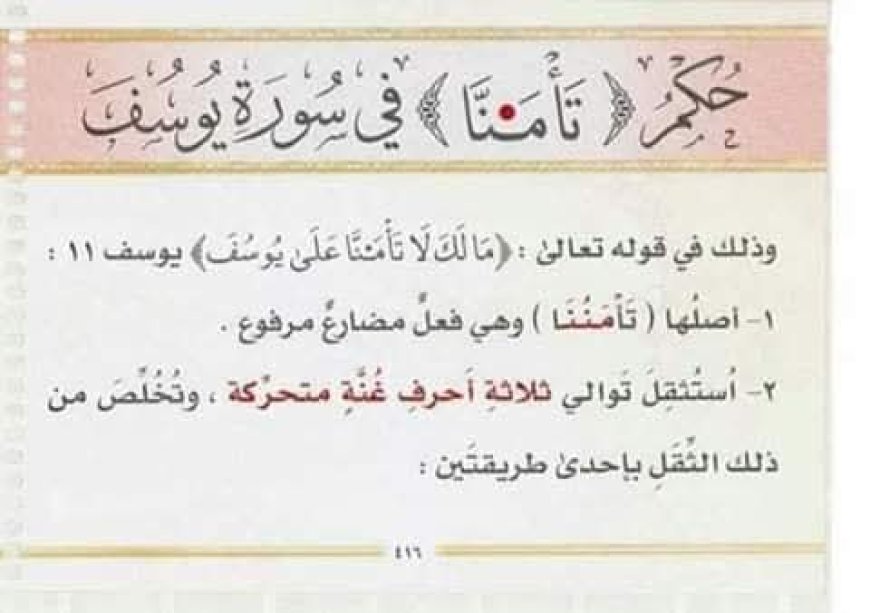 حُكْمُ ﴿ تَأْمَ۫نَّا ﴾ فِي سُورَةِ يُوسُفَ
وذلك في قوله تعالىٰ : ﴿مَا لَكَ لَا تَأْمَ۫نَّا عَلَىٰ يُوسُفَ﴾ يوسف ١١ :
١- أصلُها ( تَأْمَنُنَا ) وهي فعلٌ مضارعٌ مرفوع .
٢- اُستُثقِلَ تَوالي ثلاثةِ أحرفِ غُنَّةٍ متحرِّكة ، وتُخُلِّصَ من
ذلك الثِّقَلِ بإحدىٰ طريقتَين :
٤١٦